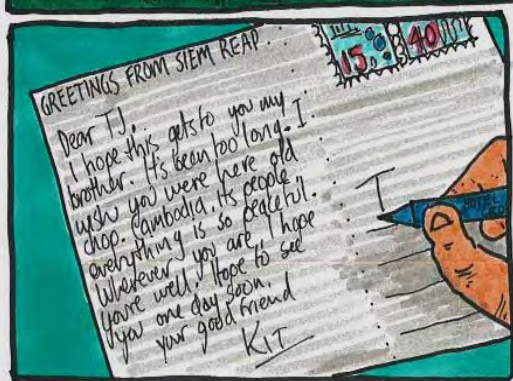 GREETINGS FROM SIEM REAP
15
40
Dear TJ.
I hope this gets to you my
brother. It's been too long. I
wish you were here old
chap. Cambodia. its people
everything is so peaceful.
Wherever you are, I hope
you're well. Hope to see
you one day soon.
your good friend
KIT
T
HOTEL